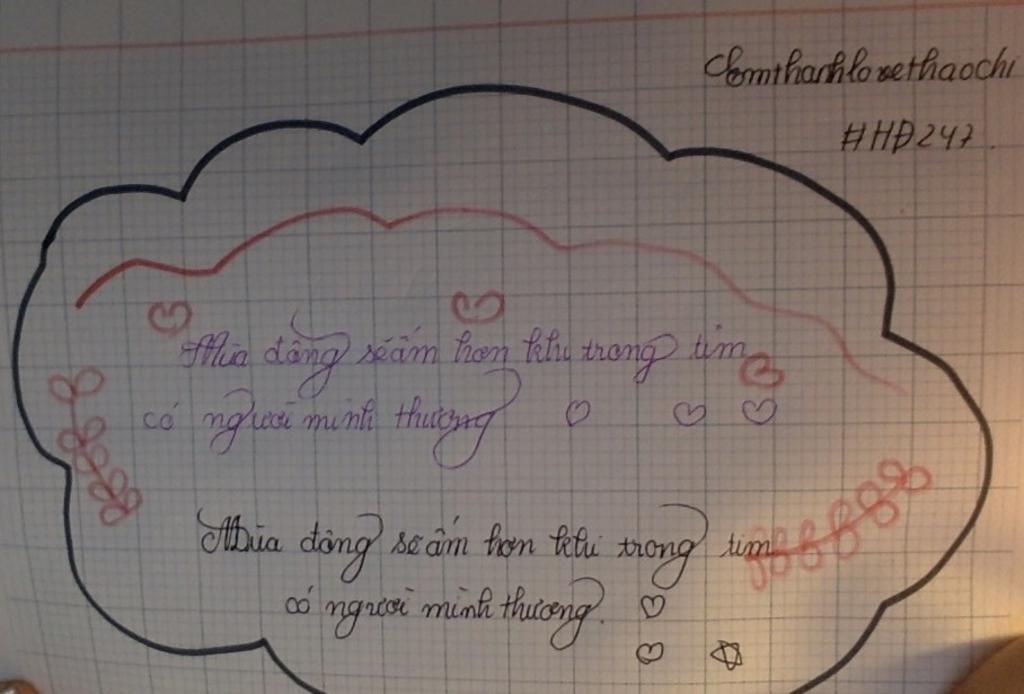 Comthanhlovethaochi
#HĐ247.
Mùa đông sẽ ấm hơn khi trong tim
có người mình thương
Mùa đông sẽ ấm hơn khi trong tim
có người mình thương.